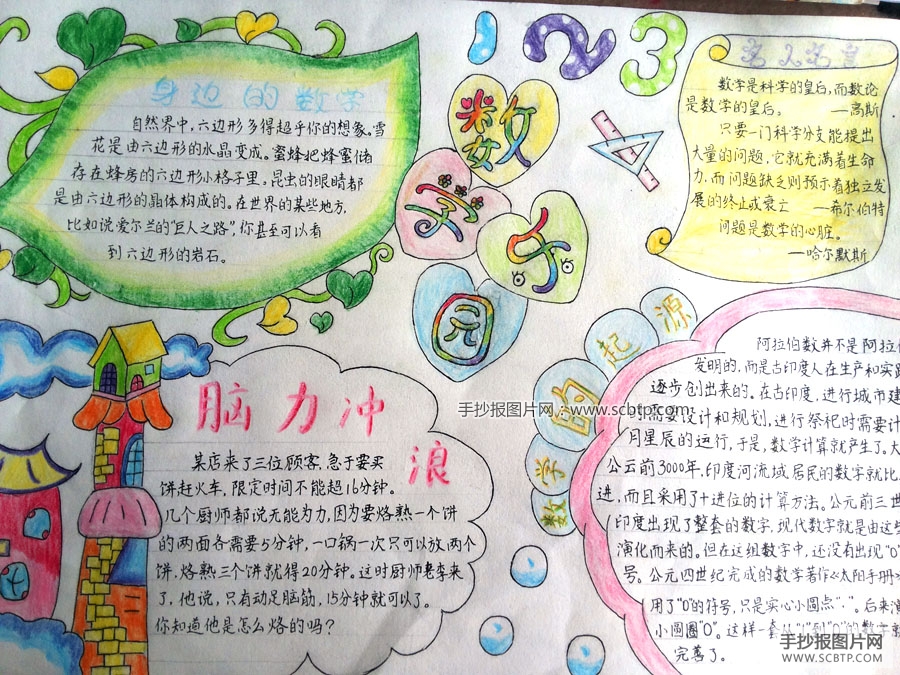 身边的数学
自然界中,六边形多得超乎你的想象。雪
花是由六边形的水晶变成。蜜蜂把蜂蜜储
存在蜂房的六边形小格子里。昆虫的眼睛都
是由六边形的晶体构成的。在世界的某些地方,
比如说爱尔兰的"巨人之路",你甚至可以看
到六边形的岩石。
123
数
学
乐
园
名人名言
数学是科学的皇后,而数论
是数学的皇后。 —高斯
只要一门科学分支能提出
大量的问题,它就充满着生命
力,而问题缺乏则预示着独立发
展的终止或衰亡 —希尔伯特
问题是数学的心脏。
—哈尔默斯
脑力冲
浪
某店来了三位顾客,急于要买
饼赶火车,限定时间不能超16分钟。
几个厨师都说无能为力,因为要烙熟一个饼
的两面各需要5分钟,一口锅一次只可以放两个
饼,烙熟三个饼就得20分钟。这时厨师老李来
了,他说,只有动足脑筋,15分钟就可以了。
你知道他是怎么烙的吗?
数学的起源
阿拉伯数并不是阿拉伯
发明的,而是古印度人在生产和实践
逐步创出来的。在古印度,进行城市建
需要设计和规划,进行祭祀时需要计
月星辰的运行,于是,数学计算就产生了。大
公云前3000年,印度河流域居民的数字就比
进,而且采用了十进位的计算方法。公元前三世
印度出现了整套的数字,现代数字就是由这些
演化而来的。但在这组数字中,还没有出现"0"
号。公元四世纪完成的数学著作《太阳手册》
用了"0"的符号,只是实心小圆点"·"。后来演
小圆圈"0"。这样一套从"1"到"0"的数字就
完善了。
手抄报图片网:www.scbtp.com
手抄报图片网
WWW.SCBTP.COM